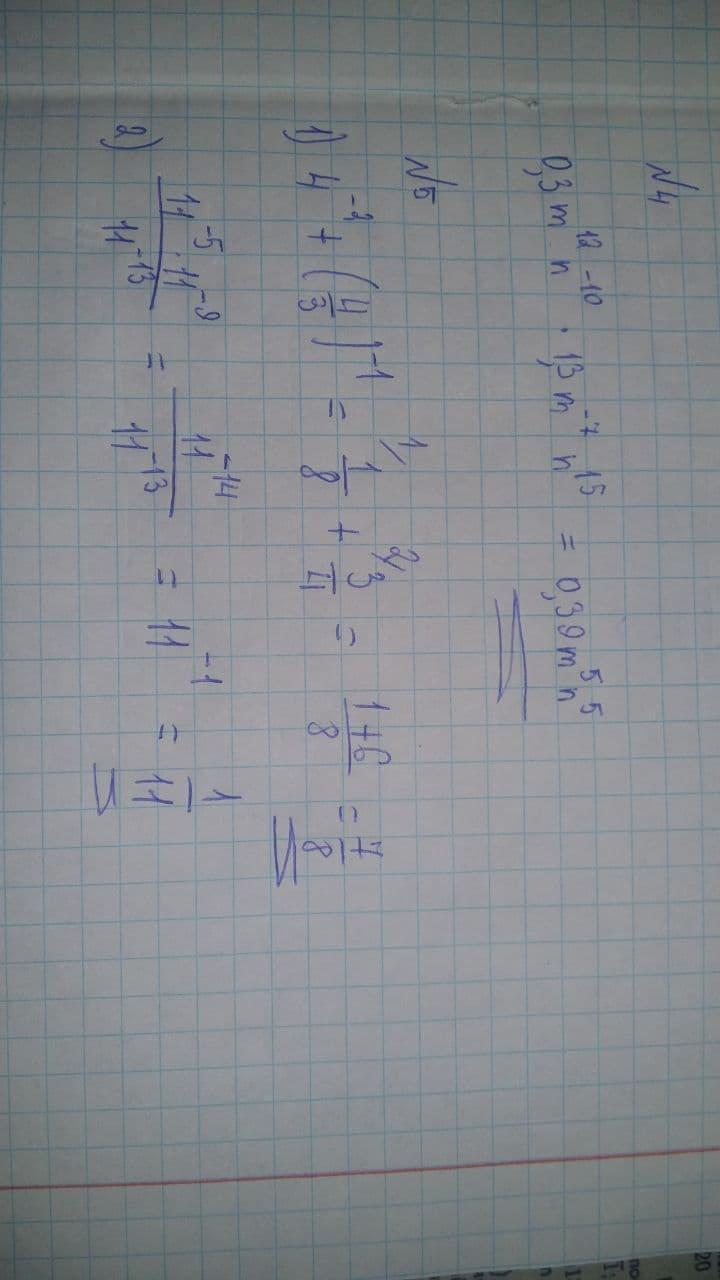 №4
0,3 m¹² n⁻¹⁰ · 1,3 m⁻⁷ n¹⁵ = 0,39 m⁵ n⁵
№5
1) 4⁻² + (4/3)⁻¹ = ¹⁄ 1/8 + ²⁄ 3/4 = 1+6/8 = 7/8
2) 11⁻⁵ · 11⁻⁹/11⁻¹³ = 11⁻¹⁴/11⁻¹³ = 11⁻¹ = 1/11
20